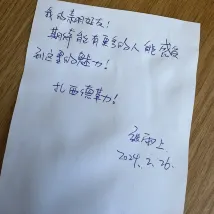 我的亲朋好友！
期待能有更多的人能感受
到这里的魅力！
扎西德勒！
上
2024.2.26.